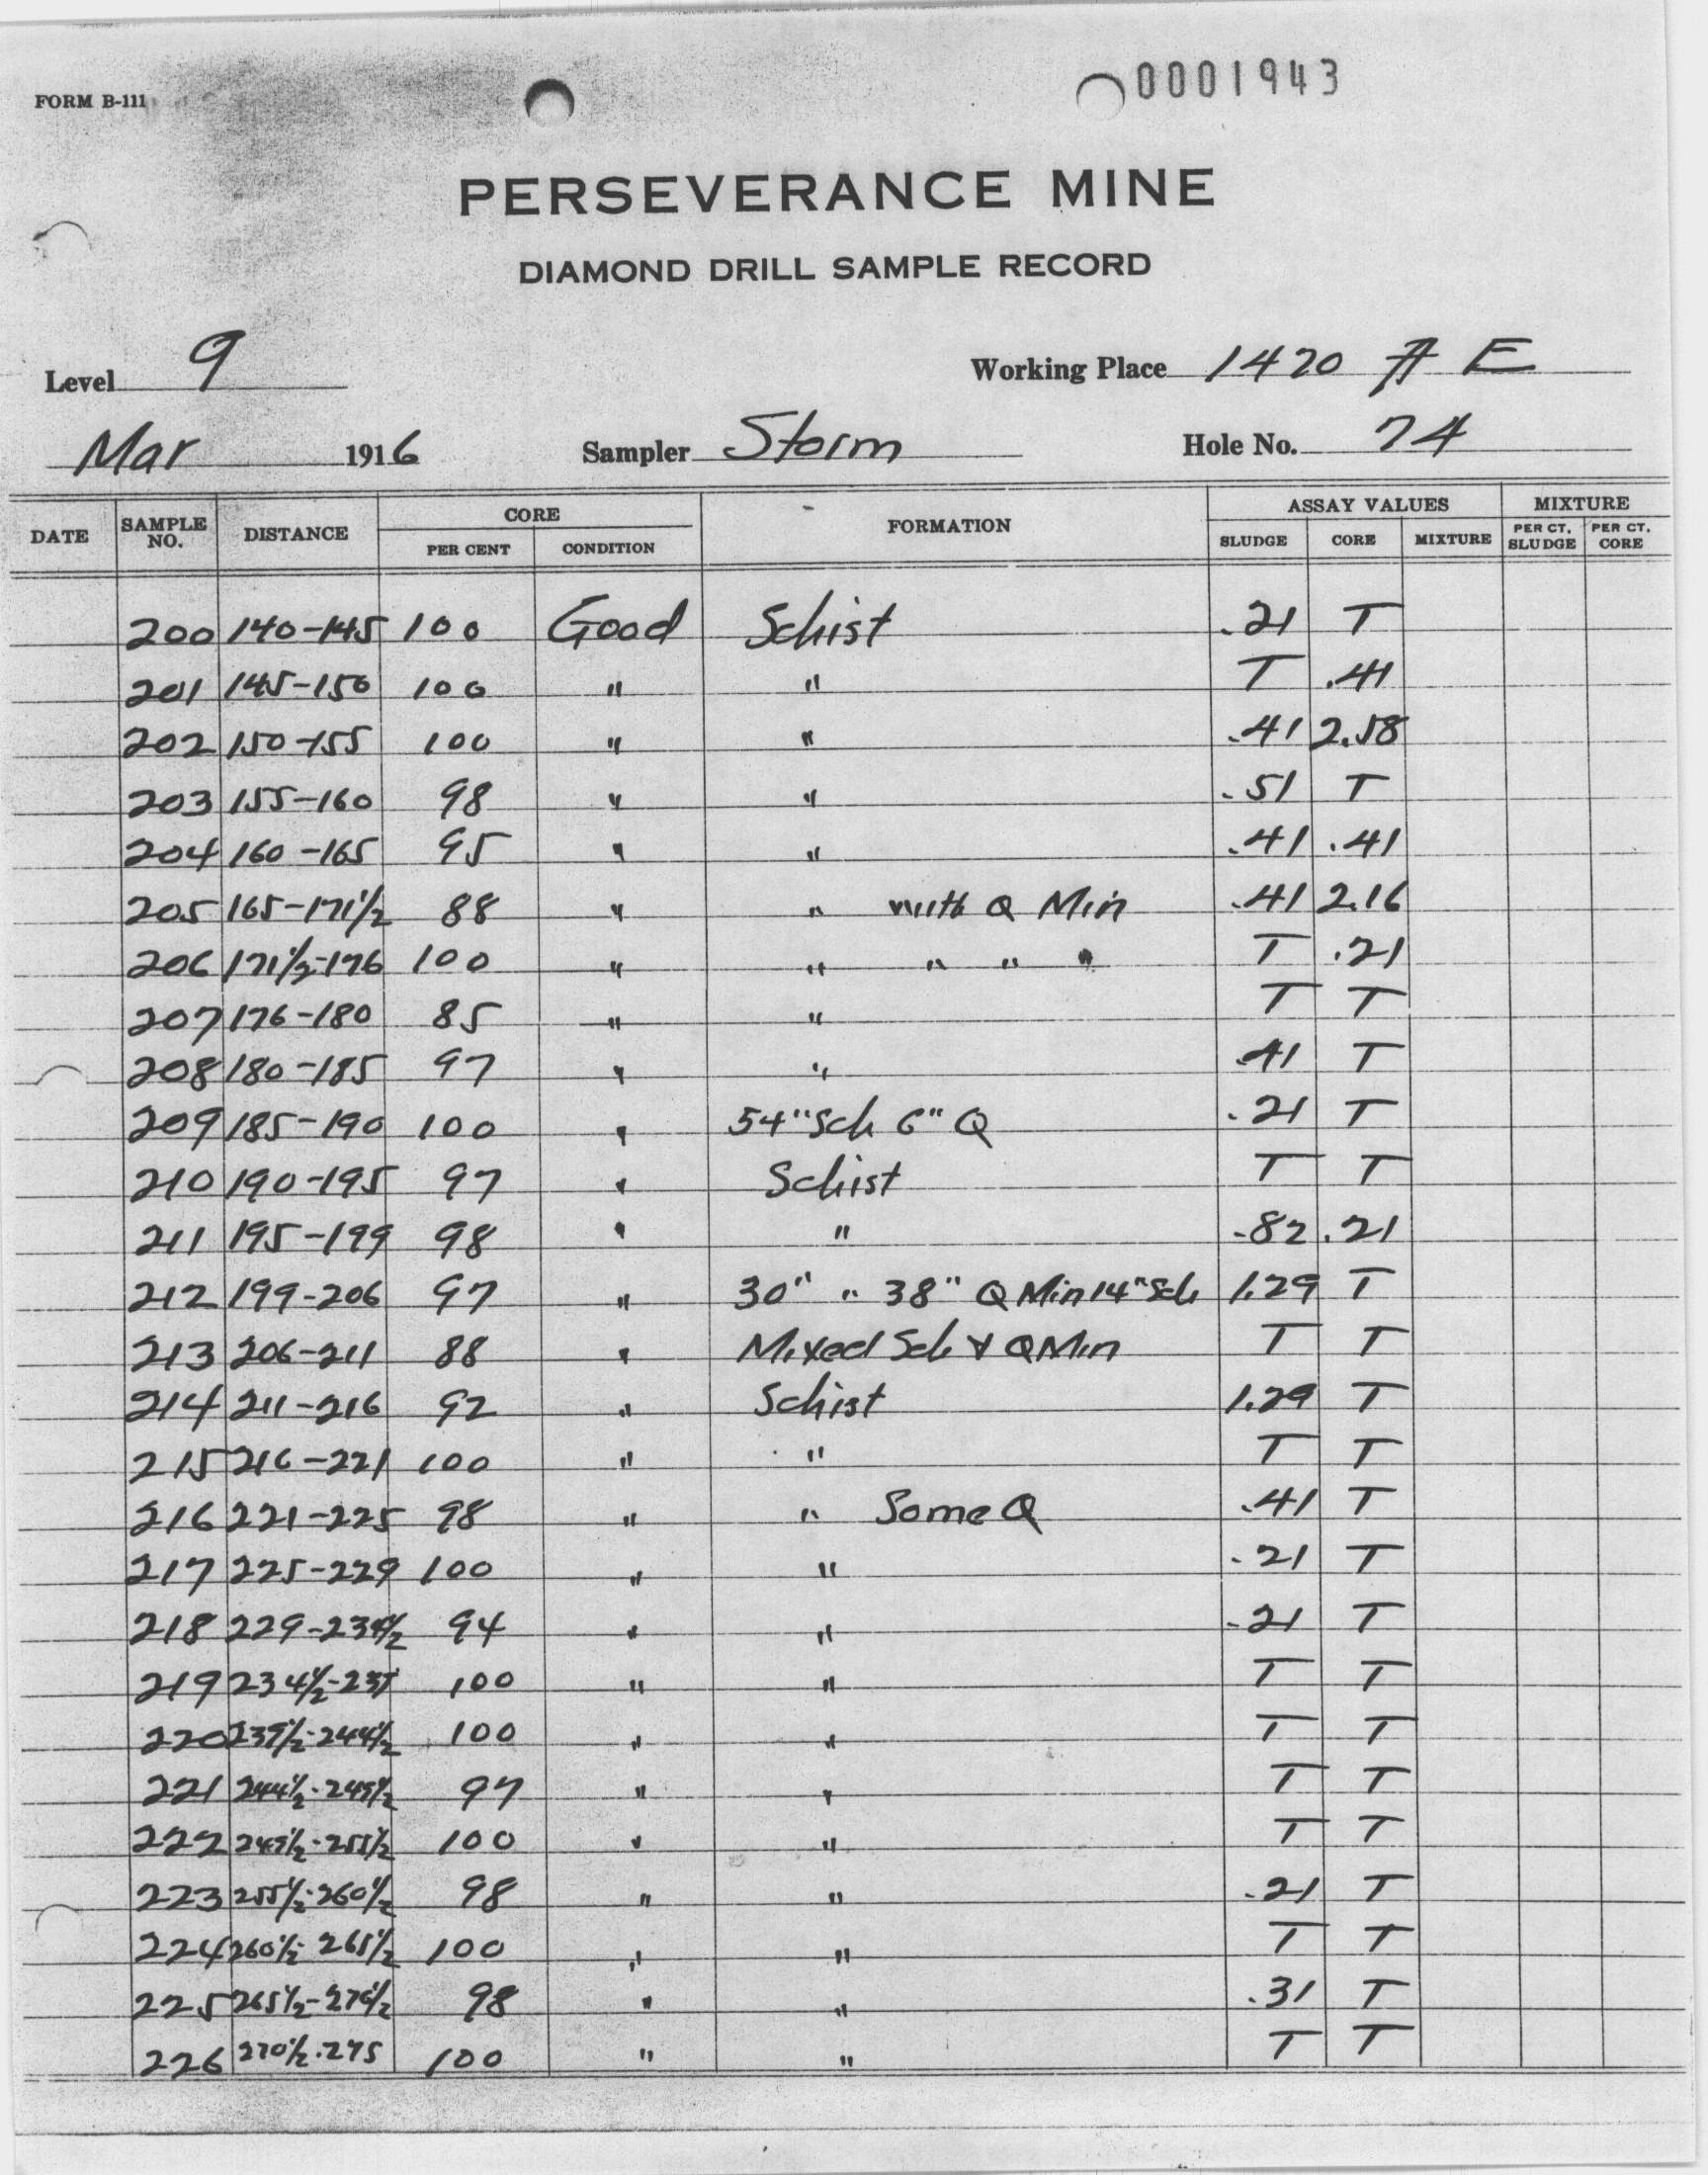 FORM B-111
0001943
PERSEVERANCE MINE
DIAMOND DRILL SAMPLE RECORD
Level 9 Working Place 1420 A E
Mar 1916 Sampler Storm Hole No. 74
DATE SAMPLE NO. DISTANCE CORE PER CENT CONDITION FORMATION ASSAY VALUES SLUDGE CORE MIXTURE MIXTURE PER CT. SLUDGE PER CT. CORE
200 140-145 100 Good Schist .21 T
201 145-150 100 " " T .41
202 150-155 100 " " .41 2.58
203 155-160 98 " " .51 T
204 160-165 95 " " .41 .41
205 165-171½ 88 " " with Q Min .41 2.16
206 171½-176 100 " " " " " T .21
207 176-180 85 " " T T
208 180-185 97 " " .41 T
209 185-190 100 " 54" Sch 6" Q .21 T
210 190-195 97 " Schist T T
211 195-199 98 " " .82 .21
212 199-206 97 " 30" " 38" Q Min 14" Sch 1.29 T
213 206-211 88 " Mixed Sch & Q Min T T
214 211-216 92 " Schist 1.29 T
215 216-221 100 " " T T
216 221-225 98 " " Some Q .41 T
217 225-229 100 " " .21 T
218 229-234½ 94 " " .21 T
219 234½- 100 " " T T
220 239½-244½ 100 " " T T
221 244½-249½ 97 " " T T
222 249½-255½ 100 " " T T
223 255½-260½ 98 " " .21 T
224 260½-265½ 100 " " T T
225 265½-270½ 98 " " .31 T
226 270½-275 100 " " T T